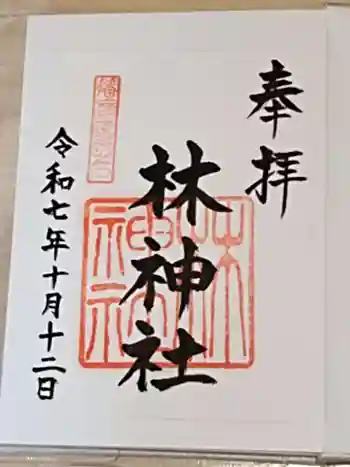 奉拝
林神社
林神社
令和七年十月十二日